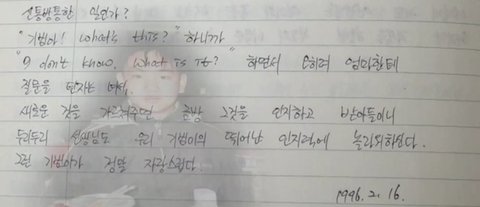 신통방통한 일인가?
"기범아! What's this?" 하니까
"I don't know. What is it?" 하면서 오히려 엄마한테
질문을 던지는 너석,
새로운 것을 가르쳐주면 금방 그것을 인지하고 받아들이니
두리두리 선생님도 우리 기범이의 뛰어난 인지력에 놀라워하신다.
그런 기범이가 정말 자랑스럽다.
1996. 2. 16.